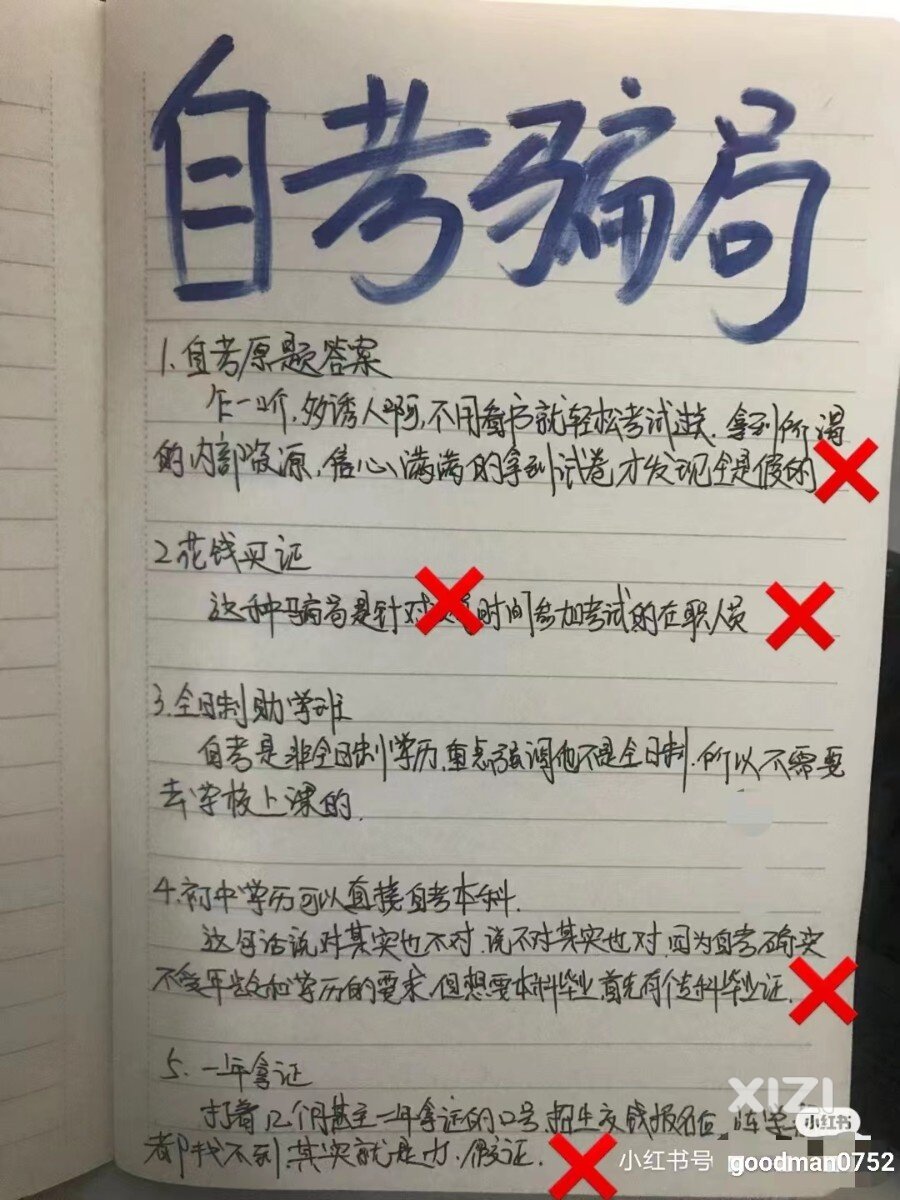 自考骗局
1.自考原题答案
乍一听,多诱人啊,不用看书就轻松考试过关.拿到所谓
的内部资源,信心满满的拿到试卷才发现全是假的
2花钱买证
这种骗局是针对 时间参加考试的在职人员
3.全日制助学班
自考是非全日制学历,重点强调他不是全日制,所以不需要
去学校上课的.
4.初中学历可以直接自考本科.
这句话说对其实也不对,说不对其实也对,因为自考确实
不受年龄和学历的要求,但想要本科毕业,首先有个专科毕业证.
5.一年拿证
打着12个月甚至一年拿证的口号,招生交钱报名后,
都找不到其实就是办假证.
XIZI
小红书
小红书号 goodman0752